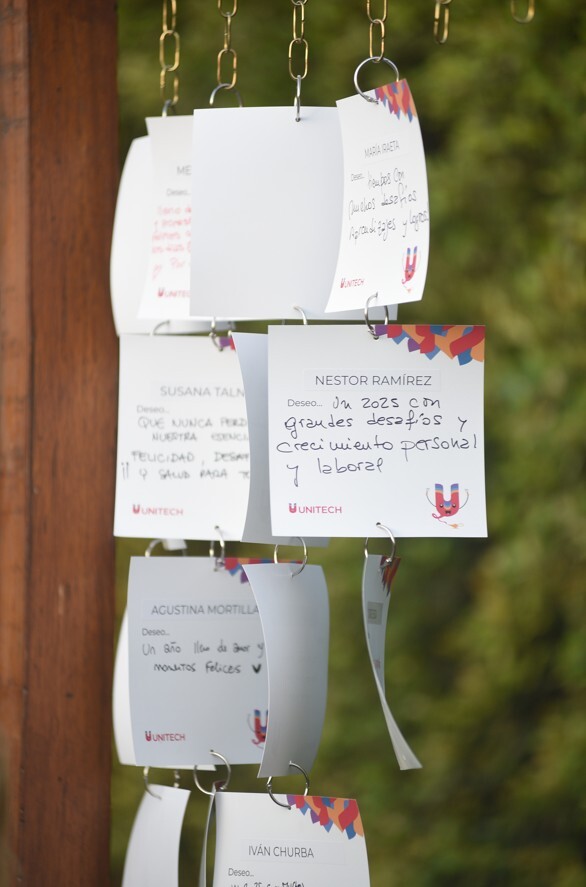 ME
Deseo...
UNITECH
MARÍA IRAETA
Deseo...
con
muchos desafíos
Aprendizajes y logros
UNITECH
SUSANA TALN
Deseo...
QUE NUNCA PERD
NUESTRA ESENCI
FELICIDAD, DESAF
¡¡ Y SALUD PARA TO
UNITECH
NESTOR RAMÍREZ
Deseo... Un 2025 con
grandes desafíos y
crecimiento personal
y laboral
UNITECH
AGUSTINA MORTILLA
Deseo...
Un año lleno de amor y
momentos felices
UNITECH
IVÁN CHURBA
Deseo...